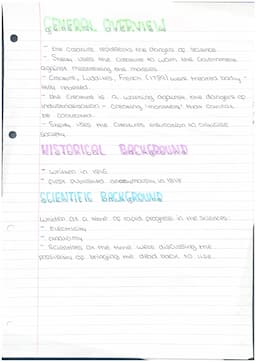 GENERAL OVERVIEW
- The Creature represents the dangers of science.
- Shelley uses the Creature to warn the Government
against mistreating the masses.
- Creature, Luddites, French (1789) were treated badly -
they rebelled.
- The Creature is a warning against the dangers of
industrialisation - creating 'monsters' that cannot
be controlled.
- Shelley uses the Creatures education to criticise
society.
HISTORICAL BACKGROUND
- written in 1816
- first published anonymously in 1818
SCIENTIFIC BACKGROUND
Written at a time of rapid progress in the sciences:
- Electricity
- Chemistry
- Scientists at the time were discussing the
possibility of bringing the dead back to life.